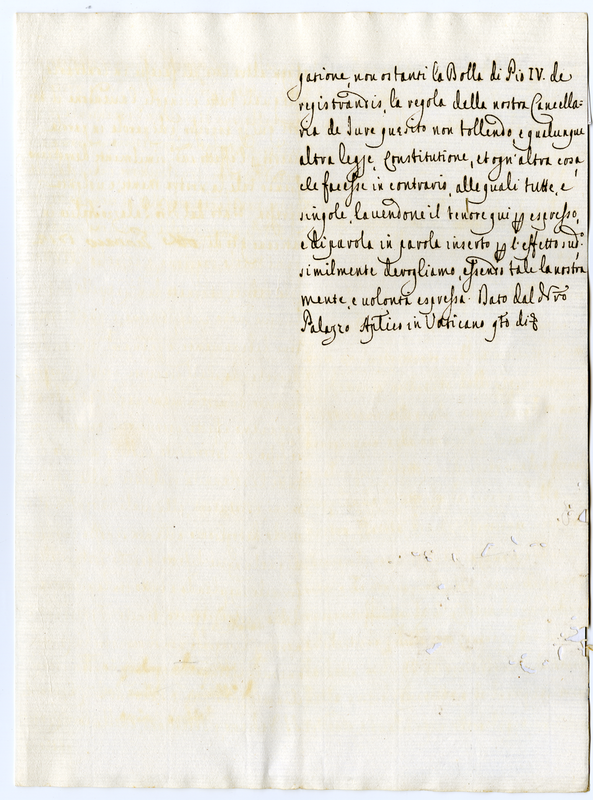 gatione, non ostanti la Bolla di Pio IV. de
registrandis, la regola della nostra Cancella=
ria de Iure quesito non tollendo, e qualunque
altra legge, Constitutione, et ogn'altra cosa,
che facesse in contrario, alle quali tutte, e
singole, havendone il tenore qui p espresso,
e di parola in parola inserto p l'effetto sud.º
similmente deroghiamo, essendo tale la nostra
mente, e volontà espressa. Dato dal Nr̃o
Palazzo Aplico in Vaticano qto di